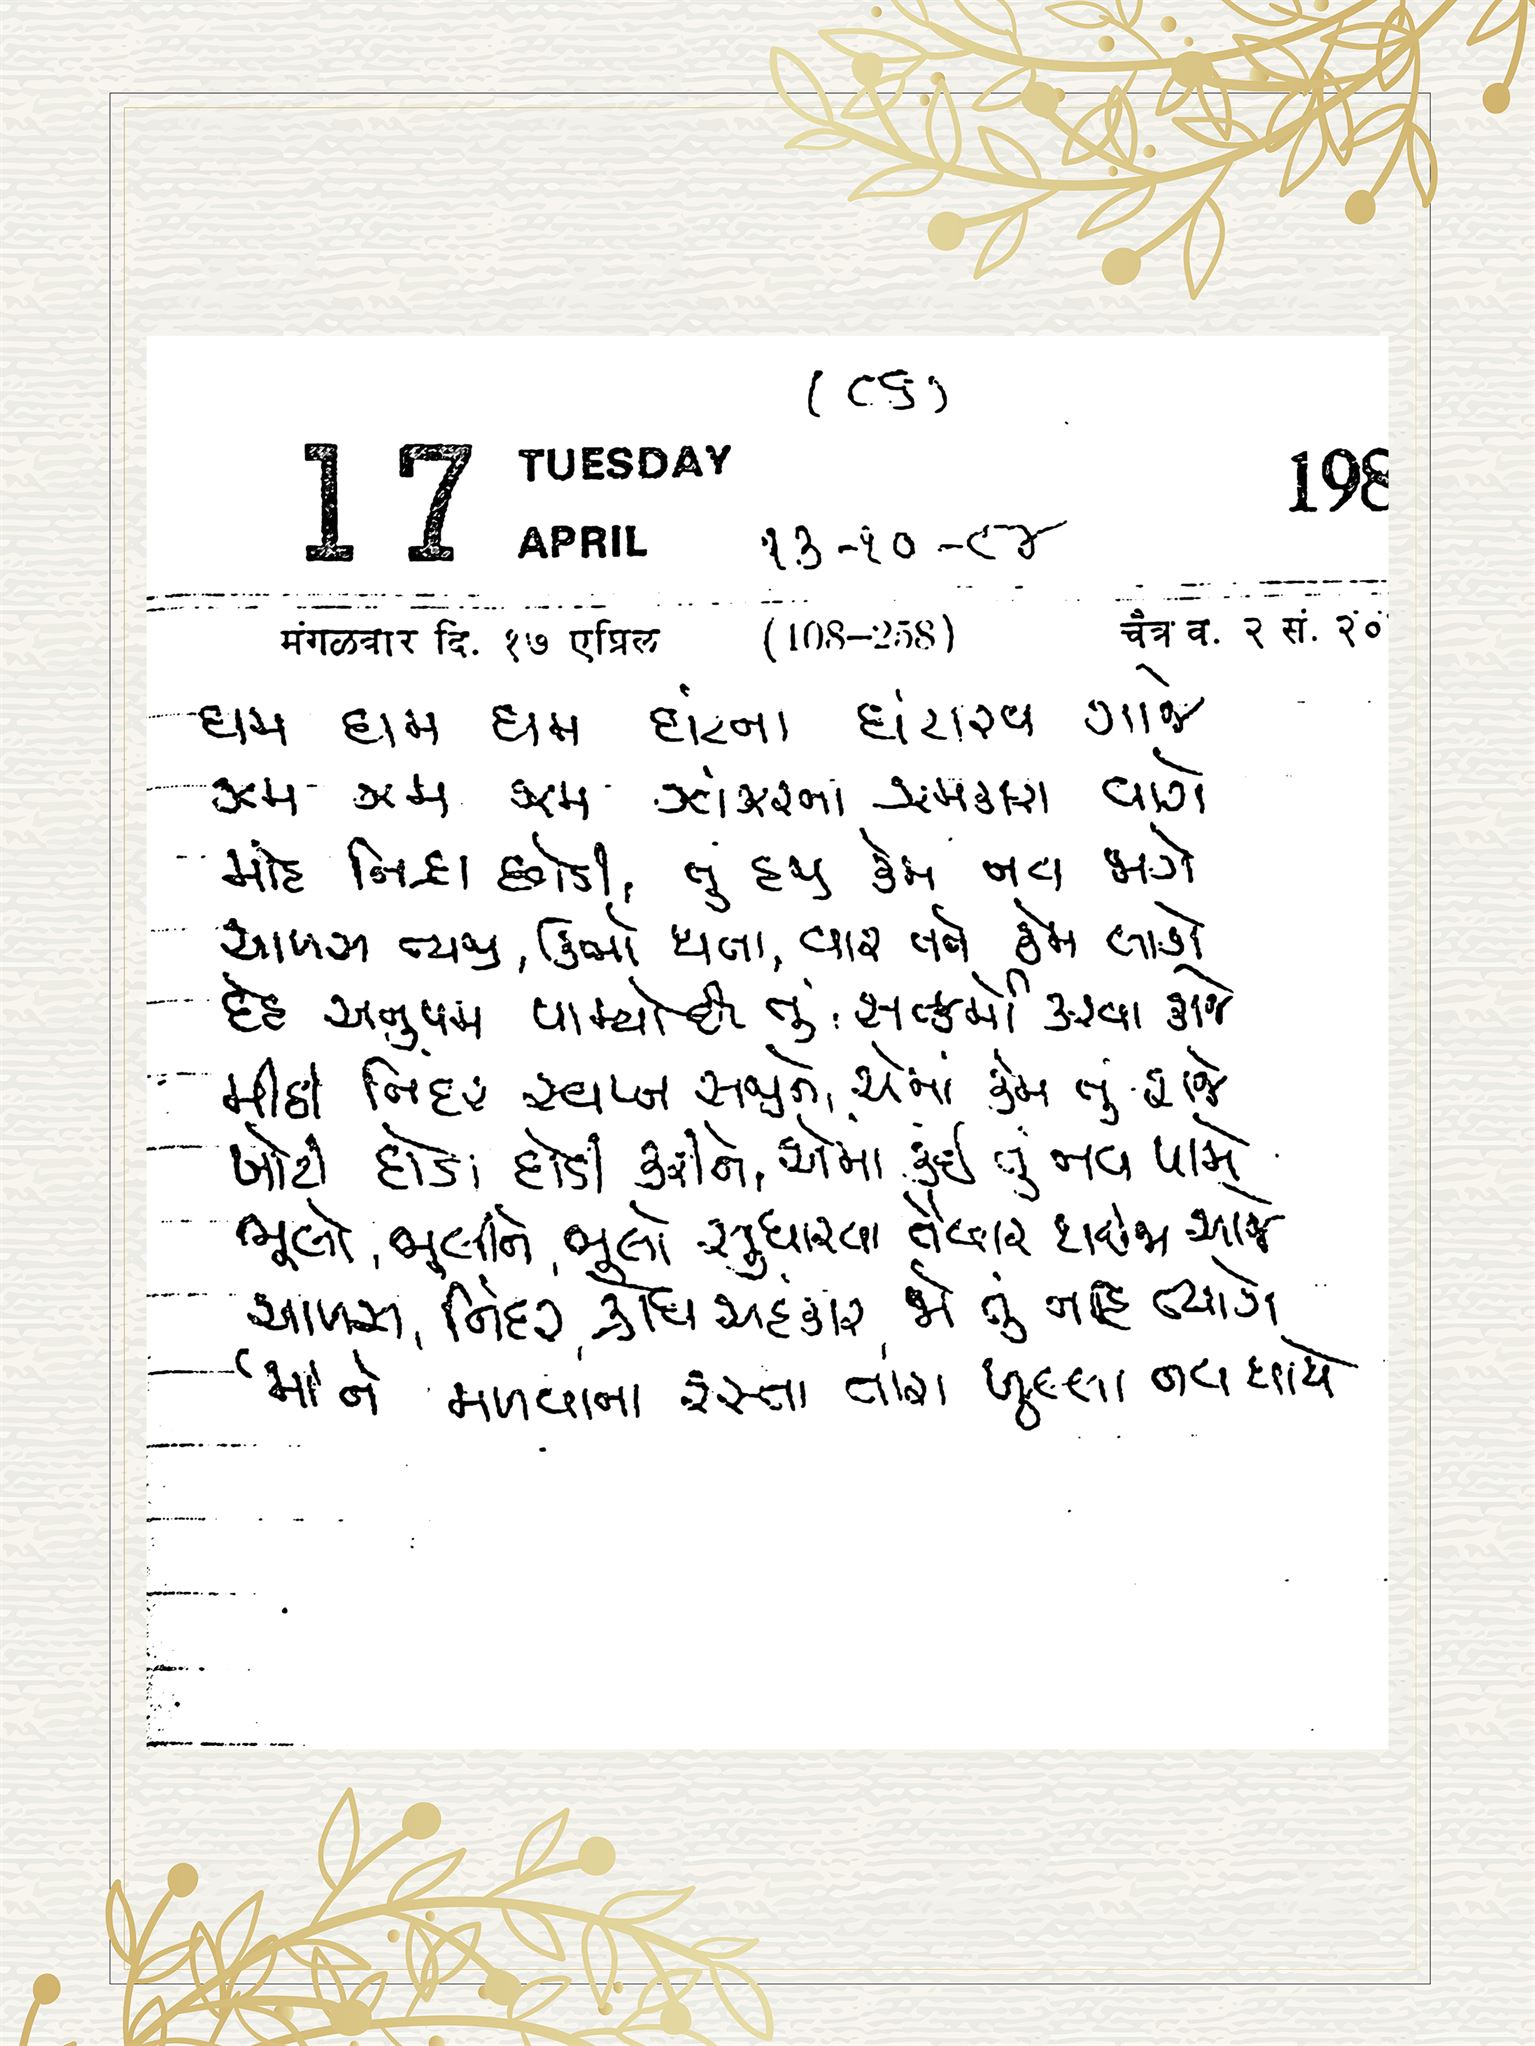 (૮૬)
17 TUESDAY 198
APRIL ૧૩-૧૦-૮૪
मंगळवार दि. १७ एप्रिल (108–258) चैत्र व. २ सं. २०
ઘમ ઘમ ઘમ ઘંટના ઘંટારવ ગાજે
ઝમ ઝમ ઝમ ઝાંઝરના ઝમકારા વાગે
મોહ નિદ્રા છોડી, તું હજુ કેમ નવ જાગે
આળસ ત્યજી, ઊભો થાતા, વાર તને કેમ લાગે
દેહ અનુપમ પામ્યો છે તું સત્કર્મો કરવા કાજે
મીઠી નિંદર સ્વપ્ન સજીને, એમાં કેમ તું રાજે
ખોટી દોડા દોડી કરીને, એમાં કંઈ તું નવ પામે
ભૂલો, ભુલીને, ભુલો સુધારવા તૈયાર થાજે આજે
આળસ, નિંદર, ક્રોધ અહંકાર, જો તું નહિ ત્યાગે
'મા'ને મળવાના રસ્તા તારા ખુલ્લા નવ થાયે